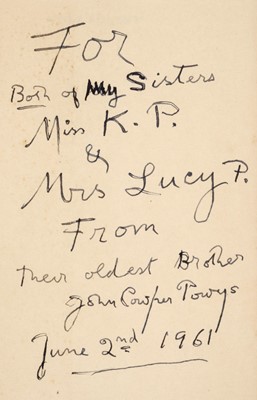 For
Both of My Sisters
Miss K. P.
&
Mrs Lucy P.
From
their oldest Brother
John Cowper Powys
June 2nd 1961